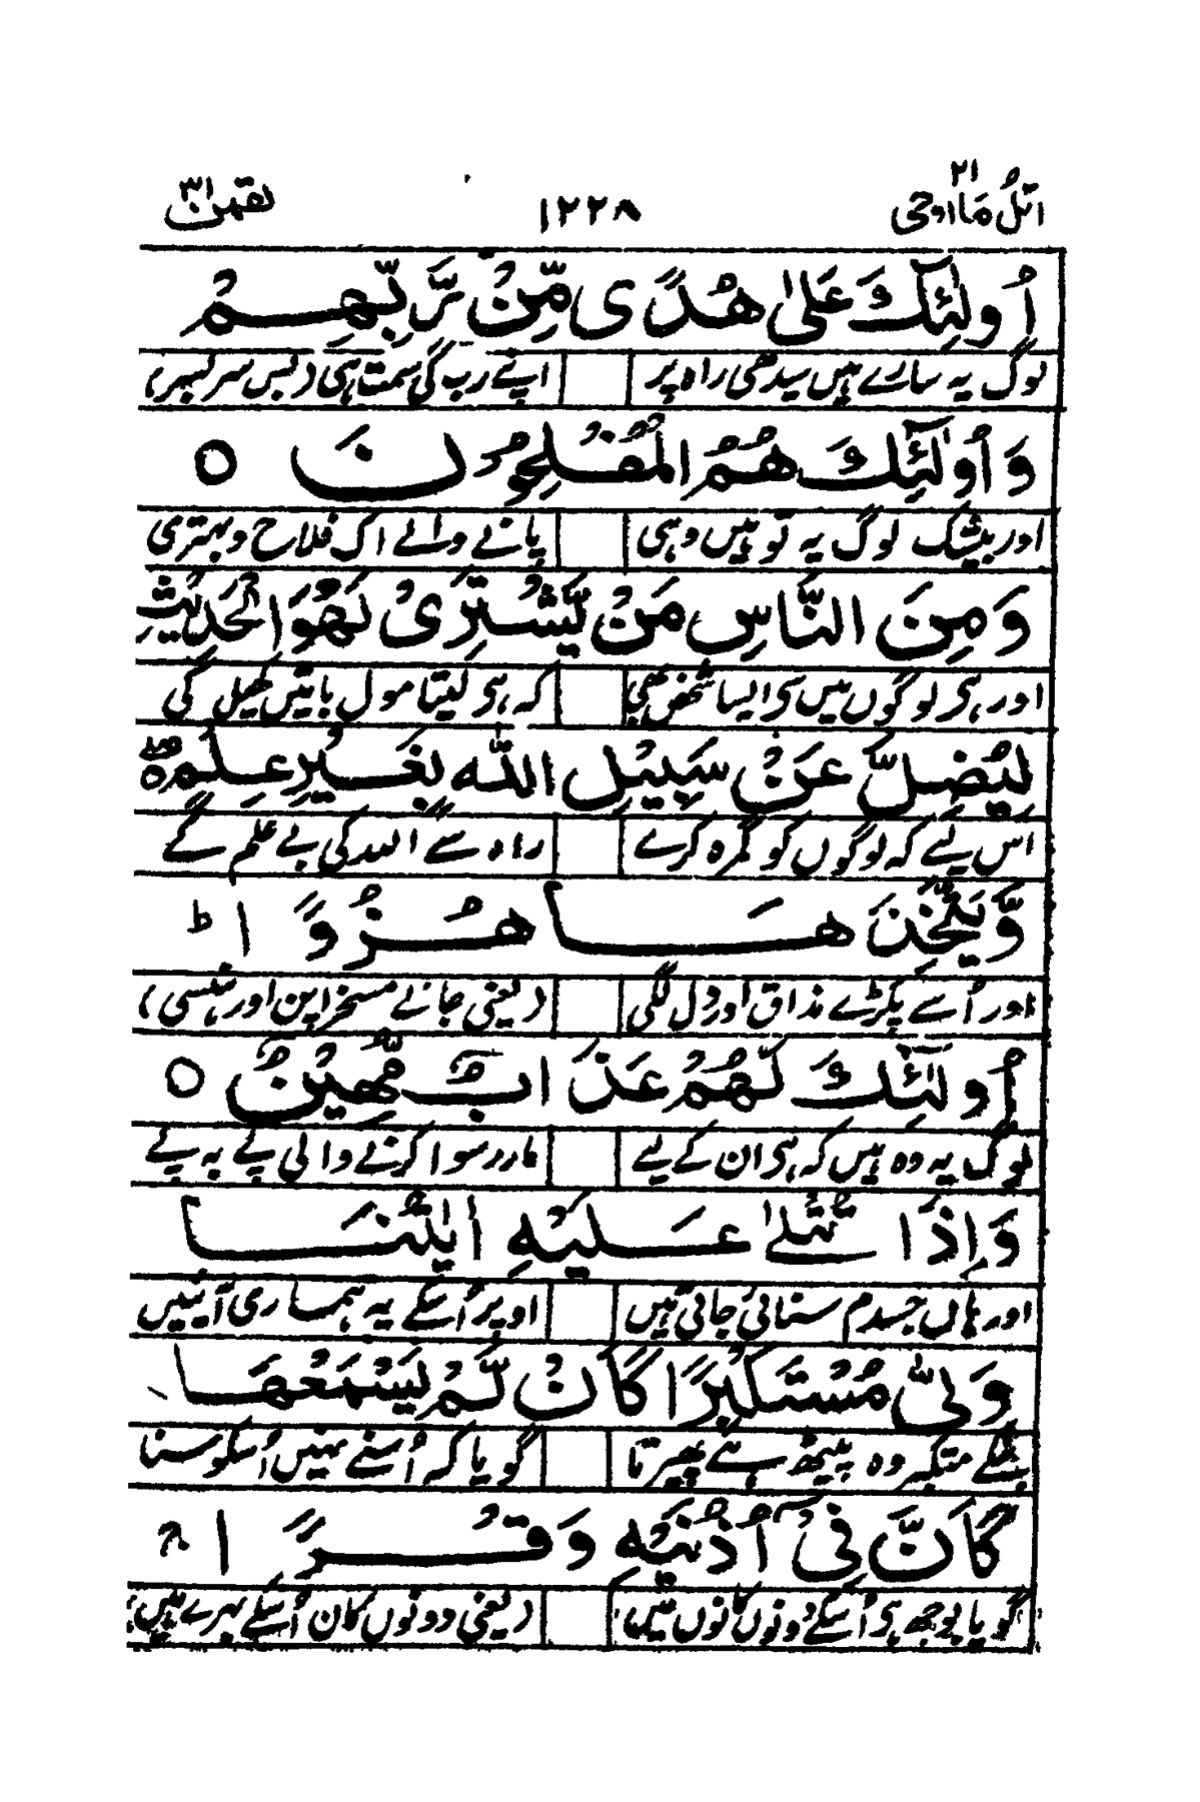 اتل ما اوحی ۲۱ ۱۲۲۸ لقمٰن ۳۱
اُولٰٓئِكَ عَلٰى هُدًى مِّنْ رَّبِّهِمْ
لوگ یہ سارے ہیں سیدھی راہ پر اپنے رب کی سمت ہی (بس سر بسر)
وَاُولٰٓئِكَ هُمُ الْمُفْلِحُوْنَ ○
اور بیشک لوگ یہ تو ہیں وہی پانے والے اک فلاح و بہتری
وَمِنَ النَّاسِ مَنْ يَّشْتَرِىْ لَهْوَ الْحَدِيْثِ
اور ہی لوگوں میں ہی ایسا شخص بھی کہ ہی لیتا مول باتیں کھیل کی
لِيُضِلَّ عَنْ سَبِيْلِ اللّٰهِ بِغَيْرِ عِلْمٍ
اس لیے کہ لوگوں کو گمرہ کرے راہ سے اللہ کی بے علم کے
وَّيَتَّخِذَ هَا هُزُوًا ط
اور اُسے پکڑے مذاق اور دل لگی (یعنی جانے مسخراپن اور ہنسی)
اُولٰٓئِكَ لَهُمْ عَذَابٌ مُّهِيْنٌ ○
لوگ یہ وہ ہیں کہ ہی ان کے لیے مار رسوا کرنے والی پے بہ پے
وَاِذَا تُتْلٰى عَلَيْهِ اٰيٰتُنَا
اور ہاں جسدم سنائی جاتی ہیں اوپر اُسکے یہ ہماری آیتیں
وَلّٰى مُسْتَكْبِرًا كَاَنْ لَّمْ يَسْمَعْهَا
بنکے متکبر وہ پیٹھ ہے پھیرتا گویا کہ اُسنے نہیں اُسکو سنا
كَاَنَّ فِىْٓ اُذُنَيْهِ وَقْرًا ج
گویا بوجھ ہی اُسکے دونوں کانوں میں (یعنی دونوں کان اُسکے بہرے ہیں)